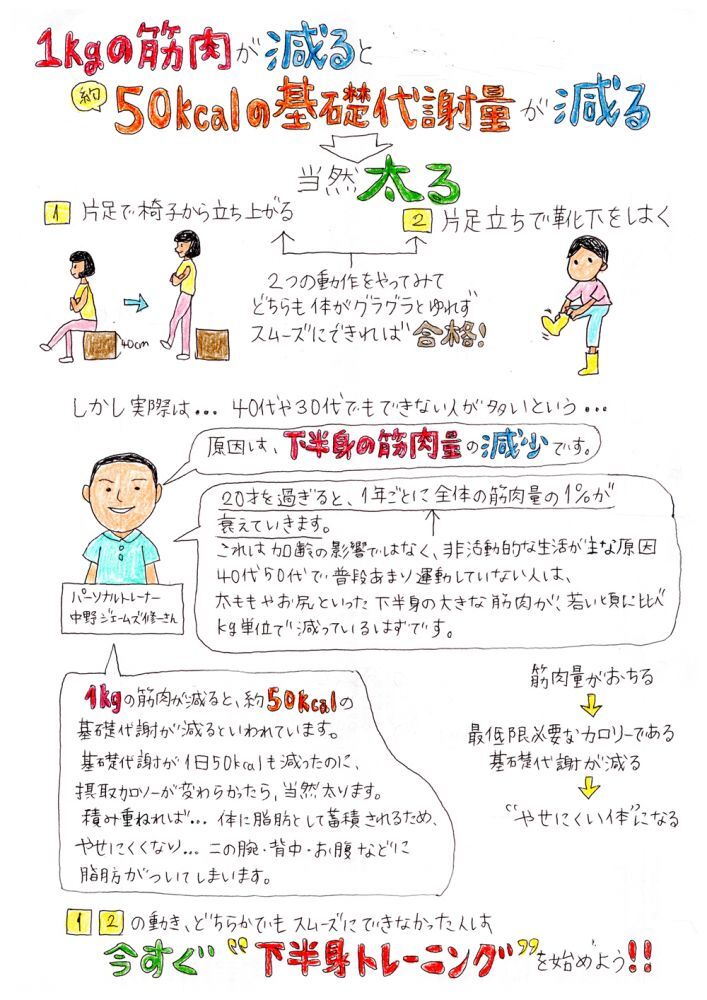 1kgの筋肉が減ると
約
50kcalの基礎代謝量が減る
当然太る
1 片足で椅子から立ち上がる
2 片足立ちで靴下をはく
40cm
2つの動作をやってみて
どちらも体がグラグラとゆれず
スムーズにできれば合格!
しかし実際は… 40代や30代でもできない人が多いという…
原因は、下半身の筋肉量の減少です。
20才を過ぎると、1年ごとに全体の筋肉量の1%が
衰えていきます。
これは加齢の影響ではなく、非活動的な生活が主な原因
40代50代で普段あまり運動していない人は、
太ももやお尻といった下半身の大きな筋肉が、若い頃に比べ
kg単位で減っているはずです。
パーソナルトレーナー
中野ジェームズ修一さん
1kgの筋肉が減ると、約50kcalの
基礎代謝が減るといわれています。
基礎代謝が1日50kcalも減ったのに、
摂取カロリーが変わらなかったら、当然太ります。
積み重ねれば… 体に脂肪として蓄積されるため、
やせにくくなり… 二の腕・背中・お腹などに
脂肪がついてしまいます。
筋肉量がおちる
最低限必要なカロリーである
基礎代謝が減る
“やせにくい体”になる
1 2 の動き、どちらかでもスムーズにできなかった人は
今すぐ“下半身トレーニング”を始めよう!!